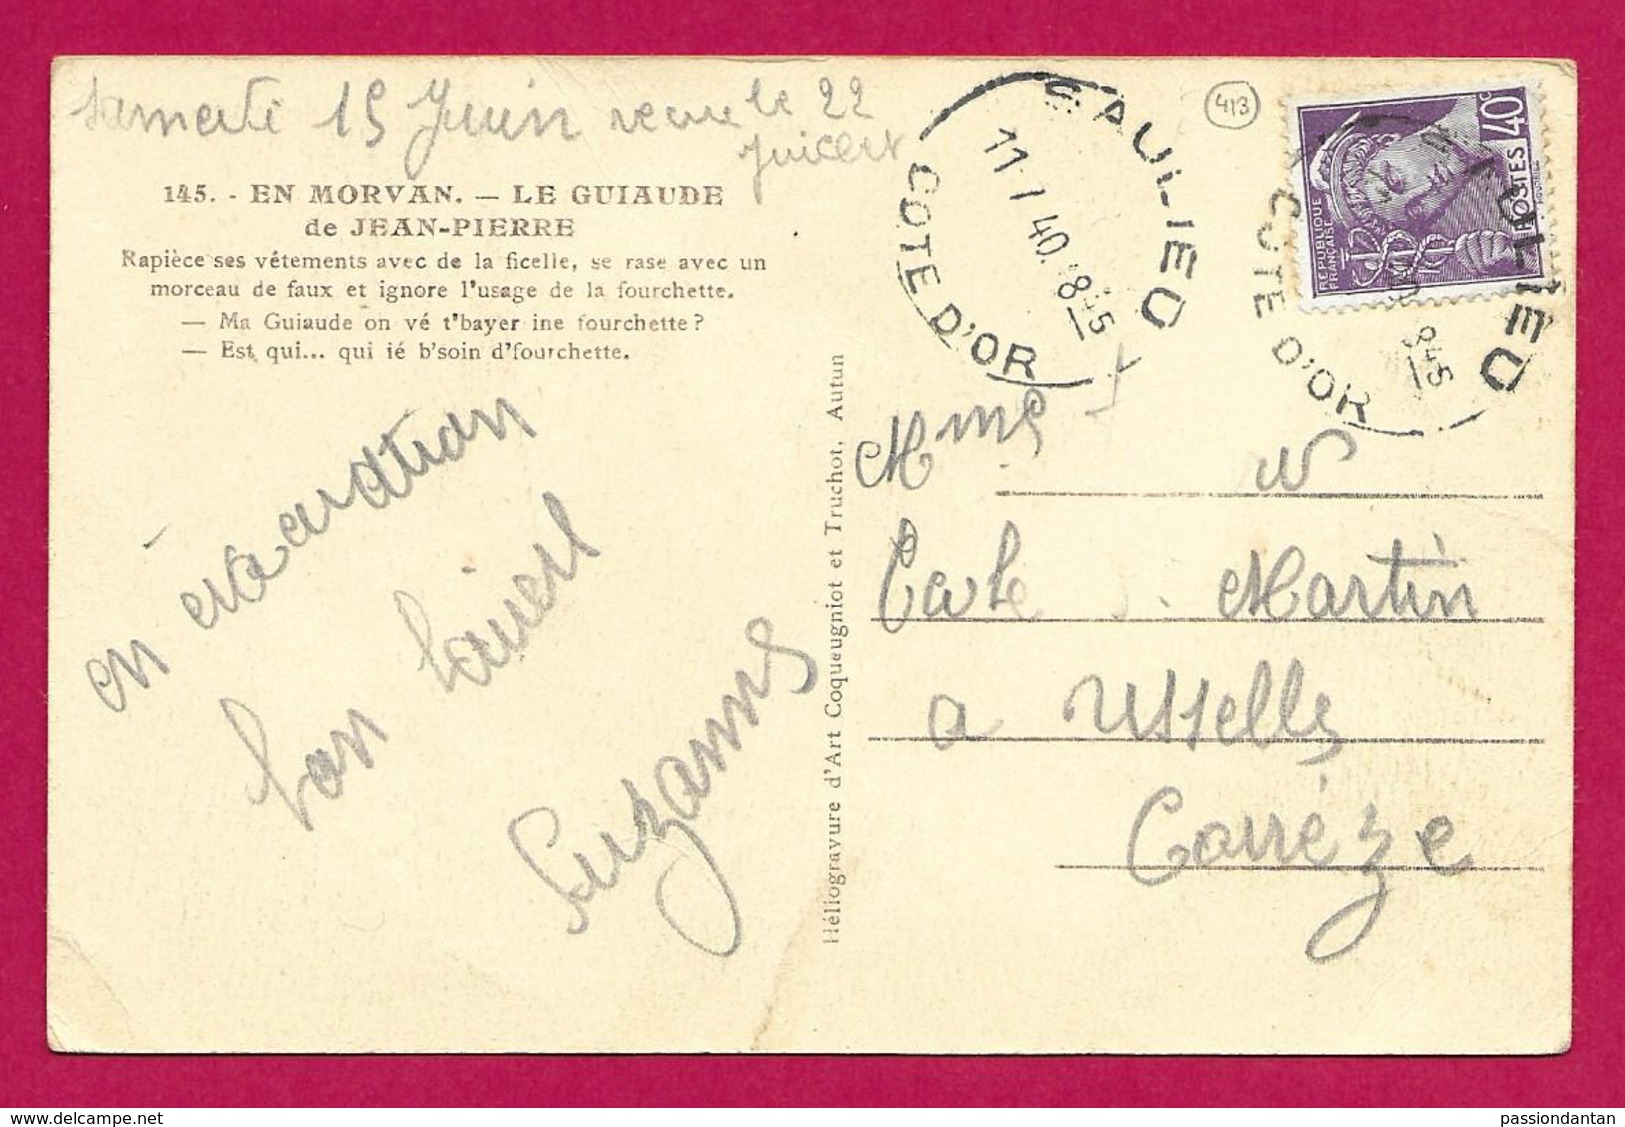 Samedi 15 Juin recue le 22
juillet
145. - EN MORVAN. — LE GUIAUDE
de JEAN-PIERRE
Rapièce ses vêtements avec de la ficelle, se rase avec un
morceau de faux et ignore l'usage de la fourchette.
— Ma Guiaude on vé t'bayer ine fourchette ?
— Est qui... qui ié b'soin d'fourchette.
en évacuation
bon baiser
Suzanne
Héliogravure d'Art Coqueugniot et Truchot, Autun
SAULIEU
11-7 40. 8 45
COTE D'OR
413
40c
POSTES
REPUBLIQUE
FRANÇAISE
SAULIEU
8 45
COTE D'OR
Mme
Martin
a Usselle
Corrèze
delcampe.net
passiondantan